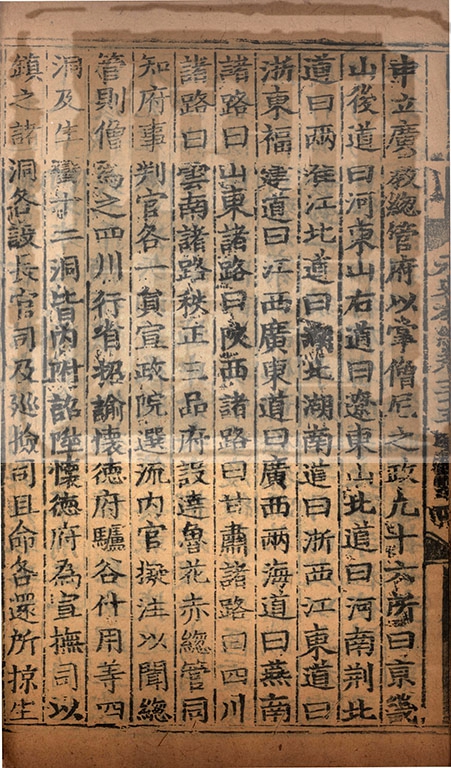 申立廣教總管府以掌僧尼之政凡十六所曰京畿
山後道曰河東山右道曰遼東山北道曰河南荊北
道曰兩淮江北道曰湖北湖南道曰浙西江東道曰
浙東福建道曰江西廣東道曰廣西兩海道曰燕南
諸路曰山東諸路曰陝西諸路曰甘肅諸路曰四川
諸路曰雲南諸路秩正三品府設達魯花赤總管同
知府事判官各一員宣政院選流內官擬注以聞總
管則僧為之四川行省招諭懷德府驢谷什用等四
洞及生蠻十二洞皆內附詔陞懷德府為宣撫司以
鎮之諸洞各設長官司及廵檢司且命各還所掠生